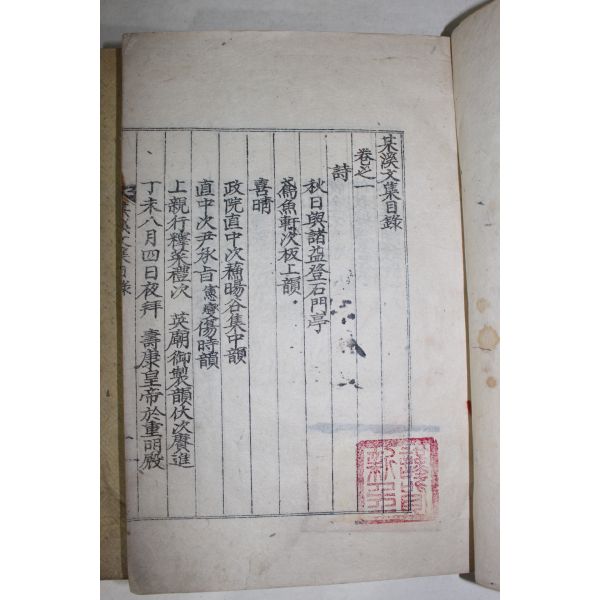 某溪文集目錄
卷之一
詩
秋日與諸益登石門亭
鳶魚軒次板上韻
喜晴
政院直中次蒲暘谷集中韻
直中次尹承旨憲燮傷時韻
上親行釋菜禮次 英廟御製韻伏次賡進
丁未八月四日夜拜 壽康皇帝於重明殿
文集目錄